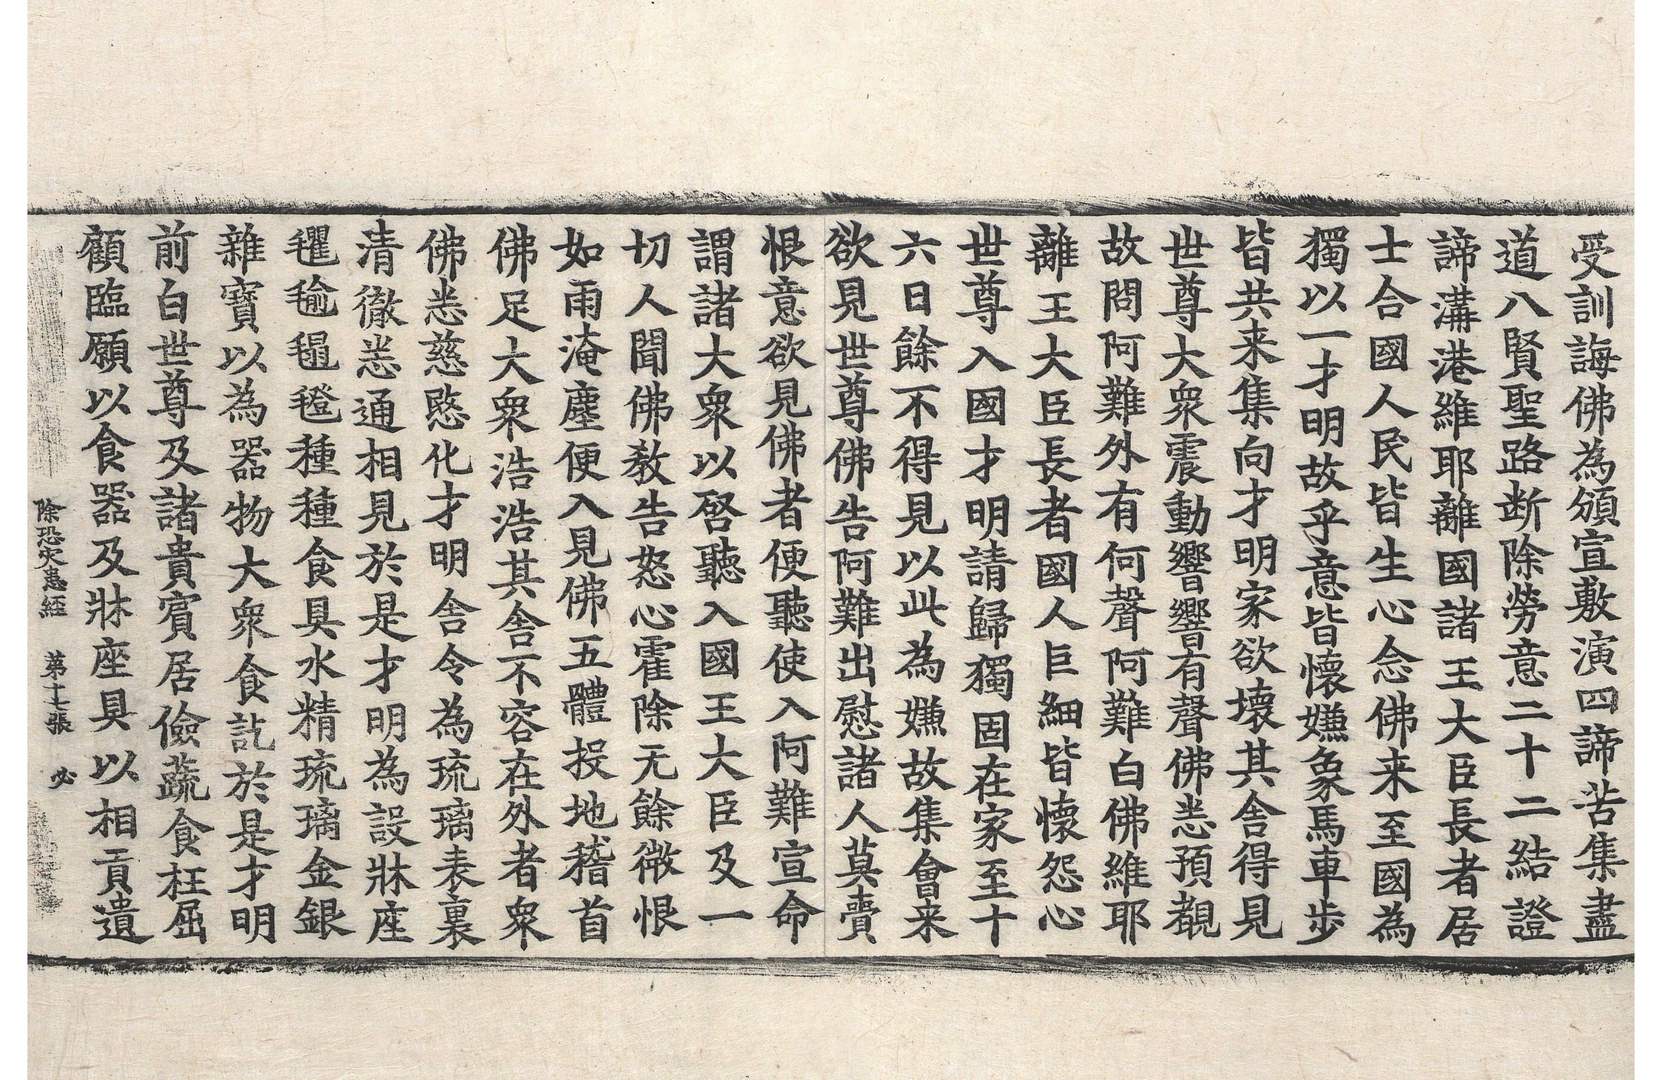 受訓誨佛為頒宣敷演四諦苦集盡
道八賢聖路断除勞意二十二結證
諦溝港維耶離國諸王大臣長者居
士合國人民皆生心念佛来至國為
獨以一才明故乎意皆懷嫌象馬車步
皆共来集向才明家欲壞其舍得見
世尊大衆震動響響有聲佛恙預覩
故問阿難外有何聲阿難白佛維耶
離王大臣長者國人巨細皆懷怨心
世尊入國才明請歸獨固在家至十
六日餘不得見以此為嫌故集會来
欲見世尊佛告阿難出慰諸人莫賷
恨意欲見佛者便聽使入阿難宣命
謂諸大衆以啓聽入國王大臣及一
切人聞佛教告怒心霍除无餘微恨
如雨淹塵便入見佛五體投地稽首
佛足大衆浩浩其舍不容在外者衆
佛恙慈愍化才明舍令為琉璃表裏
清徹恙通相見於是才明為設牀座
氍毹毾㲪種種食具水精琉璃金銀
雜寶以為器物大衆食訖於是才明
前白世尊及諸貴賓居儉蔬食枉屈
顧臨願以食器及牀座具以相貢遺
除恐灾患經 第十七張 必